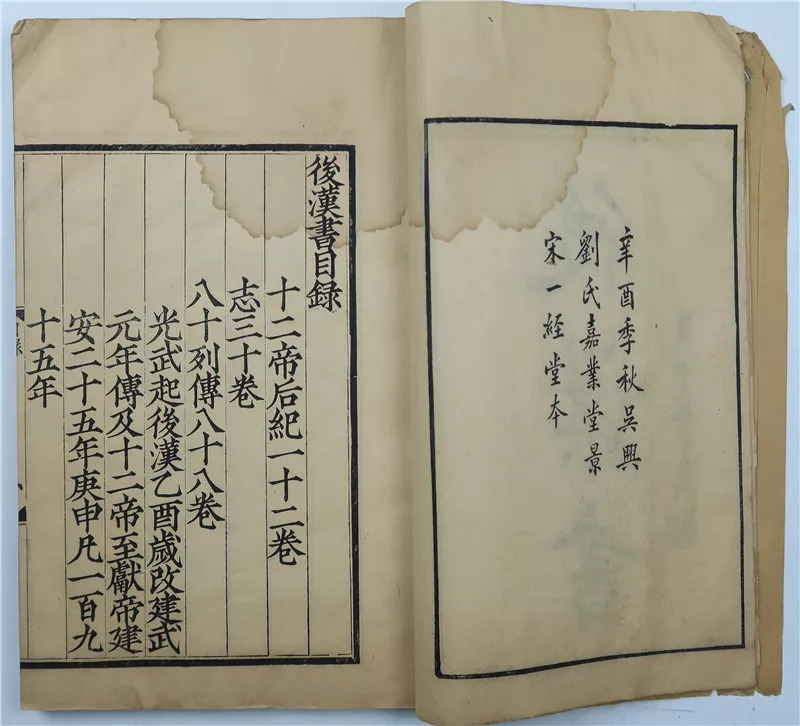 辛酉季秋吳興
劉氏嘉業堂景
宋一經堂本
後漢書目録
十二帝后紀一十二卷
志三十卷
八十列傳八十八卷
光武起後漢乙酉歲改建武
元年傳及十二帝至獻帝建
安二十五年庚申凡一百九
十五年